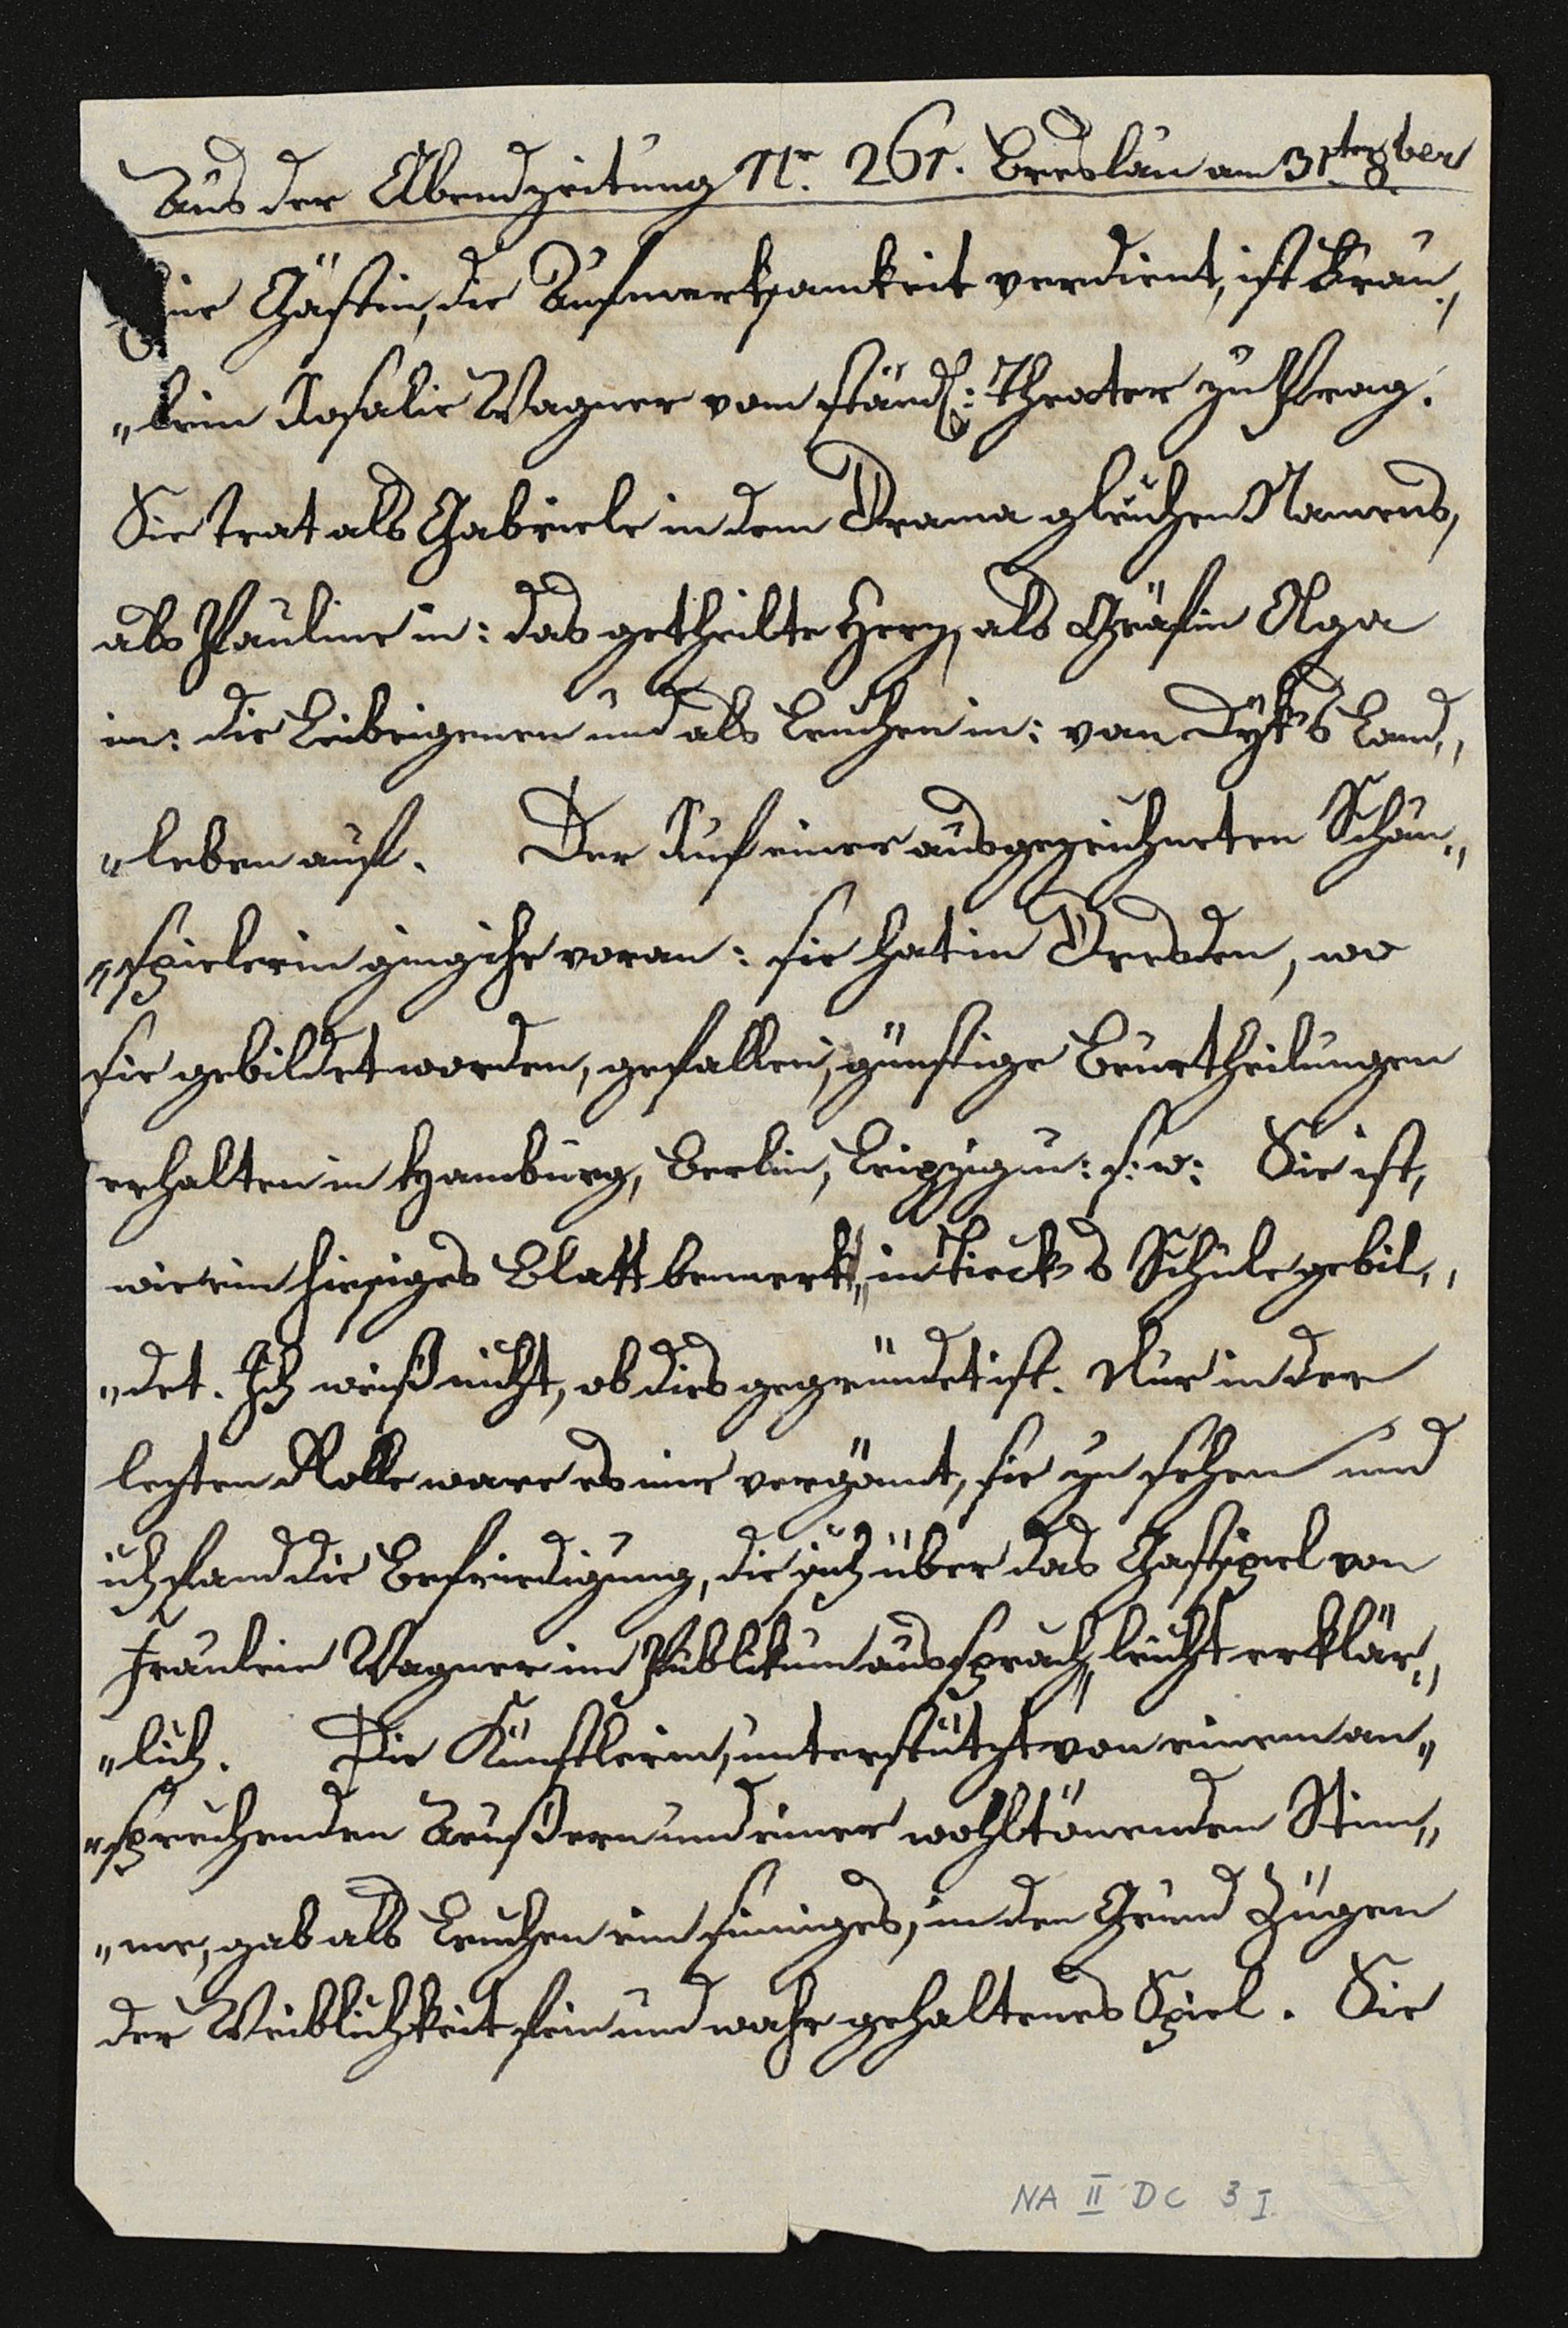 Aus der Abendzeitung Nr. 261. Breslau am 31ten 8ber
Eine Gästin, die Aufmerksamkeit verdient, ist Fräu„
„lein Rosalie Wagner vom ständ: Theater zu Prag.
Sie trat als Gabriele in dem Drama gleichen Namens,
als Pauline in: das getheilte Herz, als Gräfin Olga
in: die Leibeigenen und als Lenchen in: van Dyk's Land„
„leben auf. Der Ruf einer ausgezeichneten Schau„
„spielerin ging ihr voran: sie hat in Dresden, wo
sie gebildet worden, gefallen, günstige Beurtheilungen
erhalten in Hamburg, Berlin, Leipzig u: s: w: Sie ist,
wie ein hiesiges Blatt bemerkt, in Tiecks Schule gebil„
„det. Ich weiß nicht, ob dies gegründet ist. Nur in der
lezten Rolle ware es mir vergönnt, sie zu sehen und
ich fand die Befriedigung, die sich über das Gastspiel von
Fräulein Wagner im Publikum aussprach, leicht erklär„
„lich. Die Künstlerin, unterstützt von einem an„
„sprechenden Aeußern und einer wohltönenden Stim„
„me, gab als Lenchen ein sinniges, in den Grund Zügen
der Weiblichkeit fein und wahr gehaltenes Spiel. Sie
NA II DC 3 I